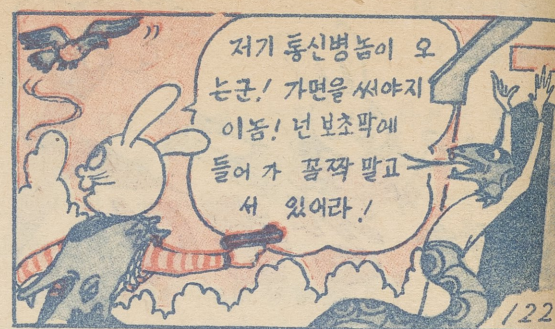 저기 통신병놈이 오
는군! 가면을 써야지
이놈! 넌 보초막에
들어 가 꼼짝 말고
서 있어라!
122